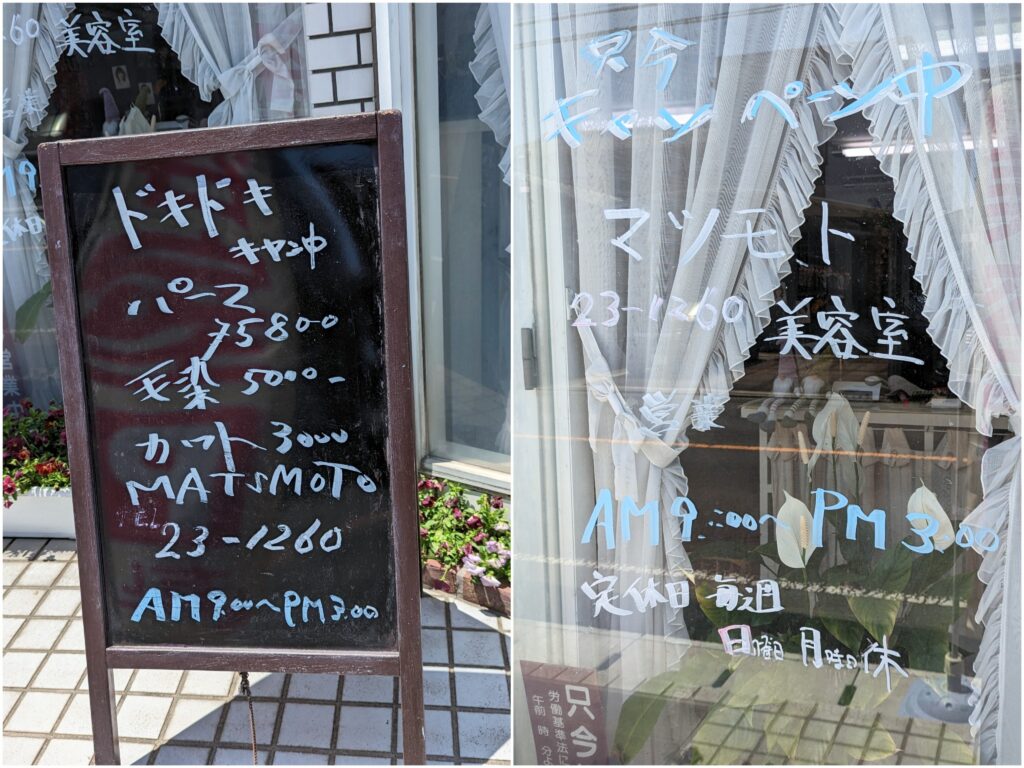 美容室
ドキドキ
キャン中
パース
¥5800
毛染 5000-
カット 3000
MATSMOTO
TEL
23-1260
AM9:00~PM3:00
只今
キャンペーン中
マツモト
23-1260
美容室
営業
AM9:00~PM3:00
定休日 毎週
日曜日 月曜日休
只今
労働基準法に
午前 時 分よ